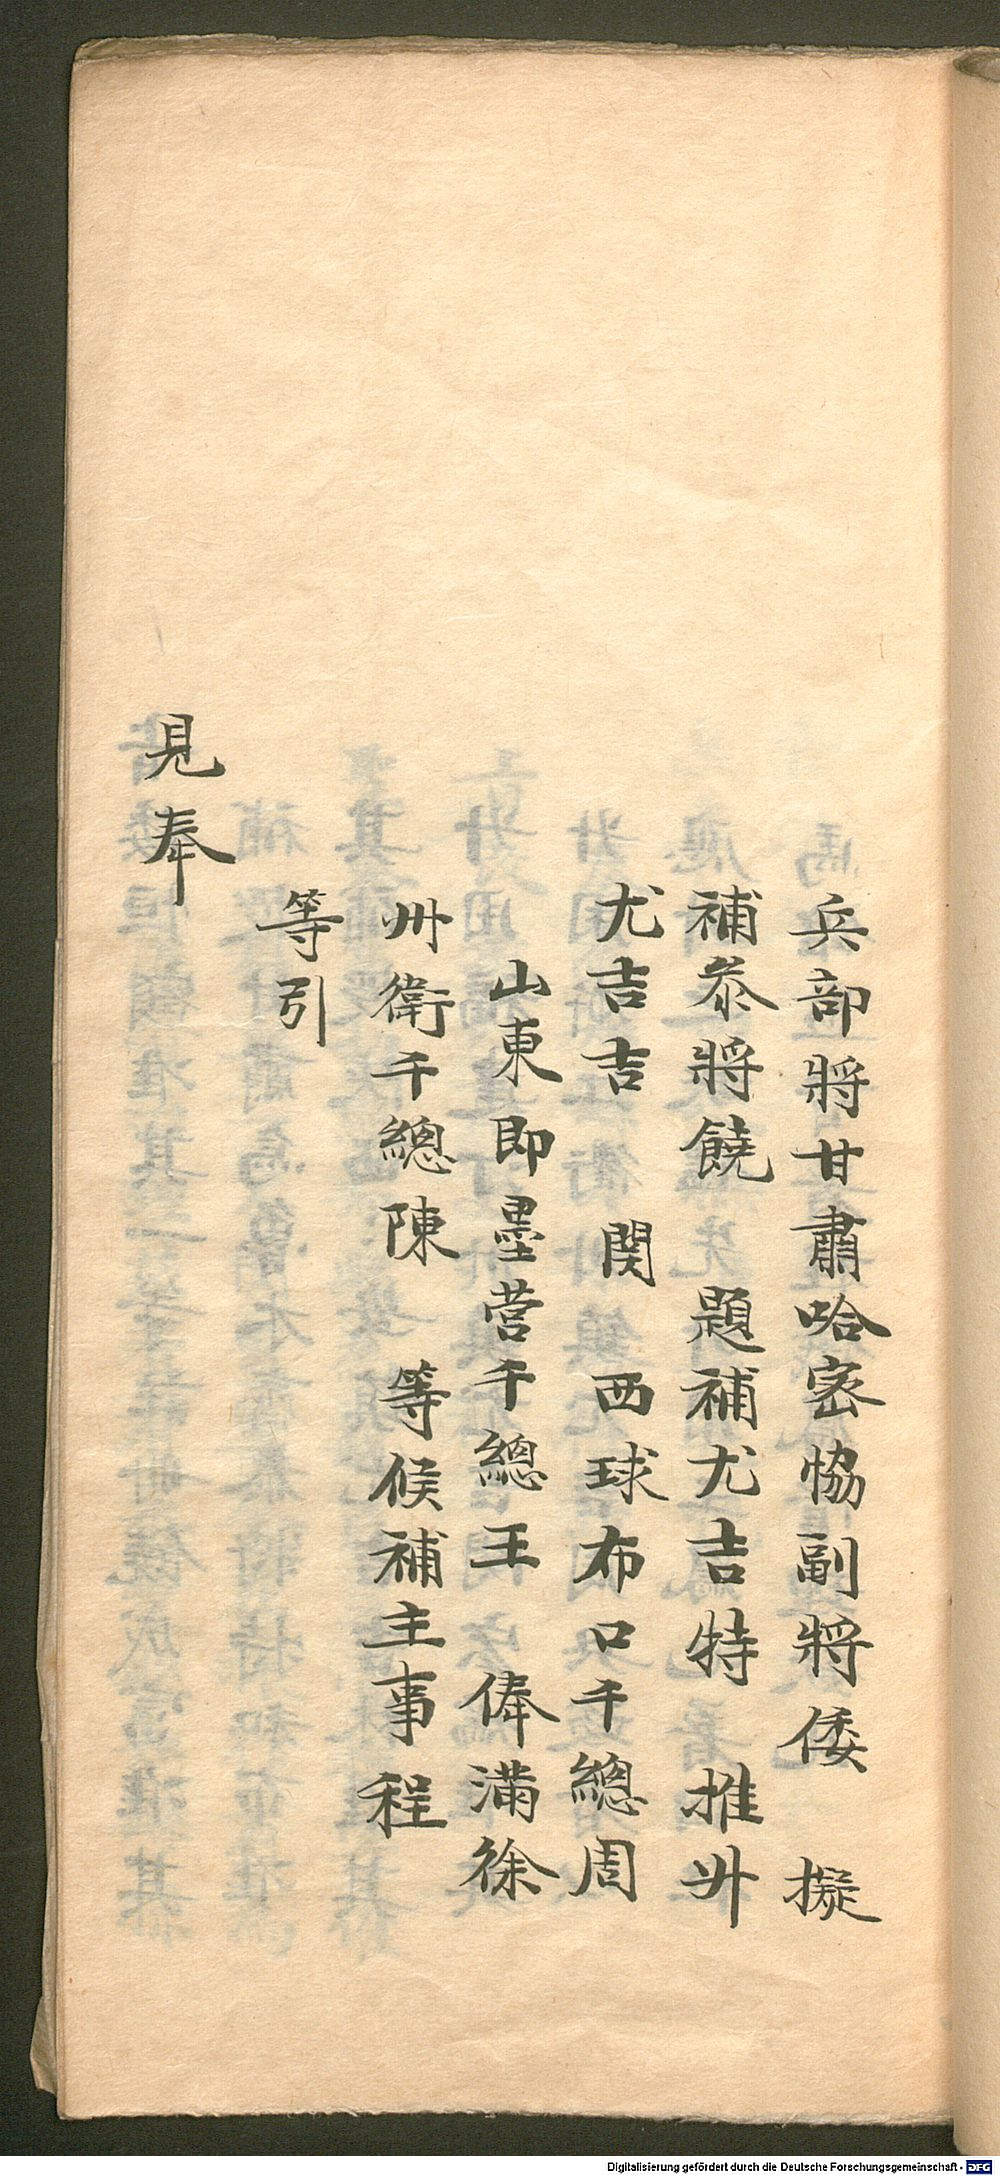 兵部將甘肅哈密協副將倭 擬
補叅將饒 題補尤吉特 推升
尤吉吉 関 西球布口千總周
山東即墨营千總王 俸滿徐
州衛千總陳 等候補主事程
等引
見奉
Digitalisierung gefördert durch die Deutsche Forschungsgemeinschaft - DFG